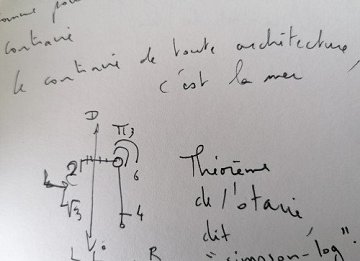 contraire
le contraire de toute architecture,
c'est la mer
D
π3
2
6
√3
4
Théorème
de l'otarie
dit
"simpson-log":
R